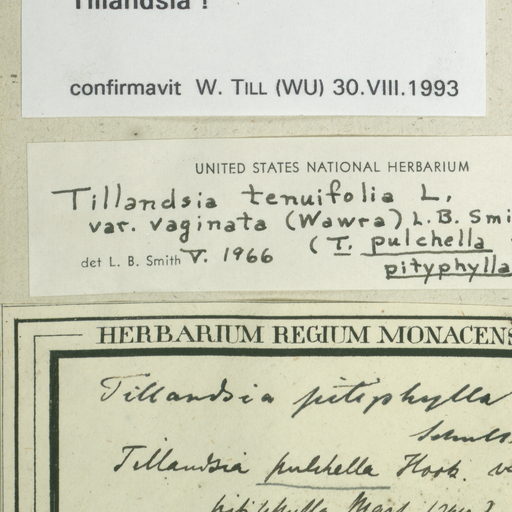 Tillandsia !
confirmavit W. TILL (WU) 30.VIII.1993
UNITED STATES NATIONAL HERBARIUM
Tillandsia tenuifolia L.
var. vaginata (Wawra) L. B. Smi
(T. pulchella
det L. B. Smith V. 1966
pityphylla
HERBARIUM REGIUM MONACENS
Tillandsia pitiphylla
Schult
Tillandsia pulchella Hook. v
pitiphylla Mart.